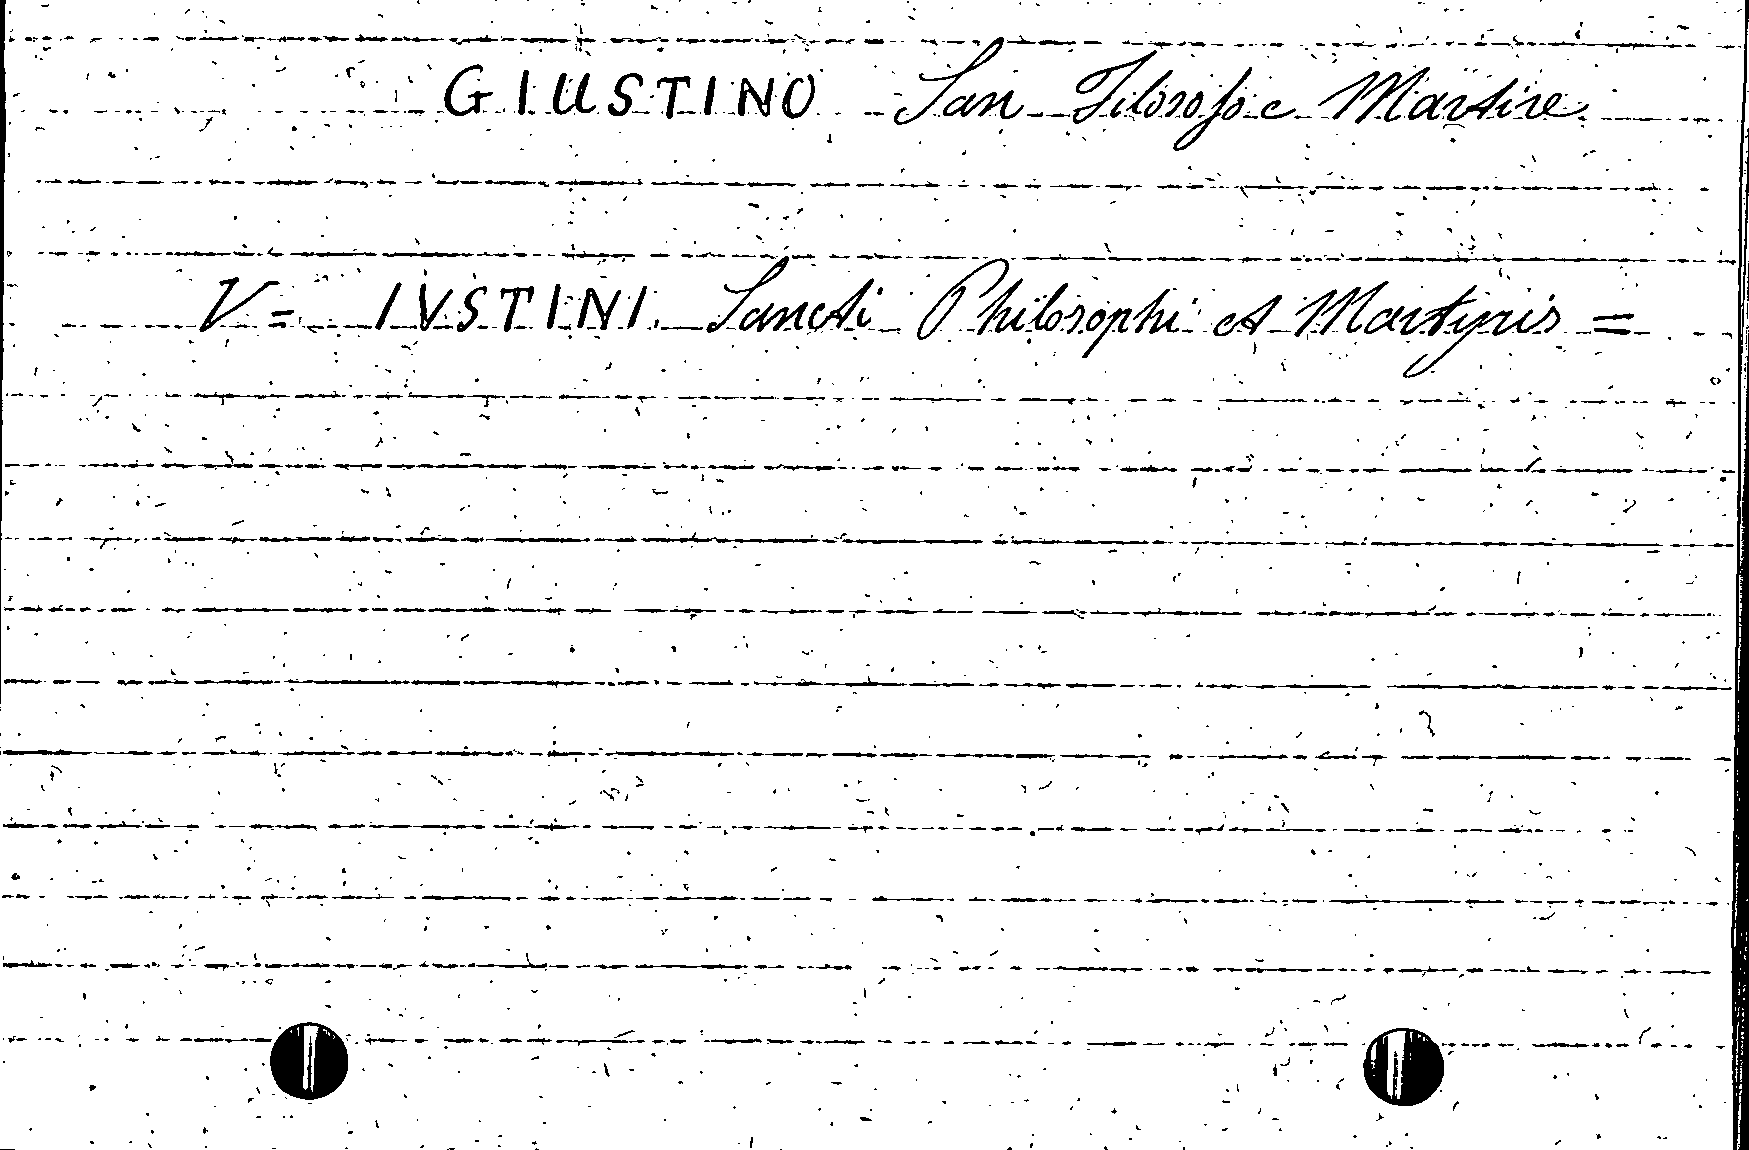 GIUSTINO San Filosofo e Martire.
V= IVSTINI. Sancti Philosophi et Martyris =